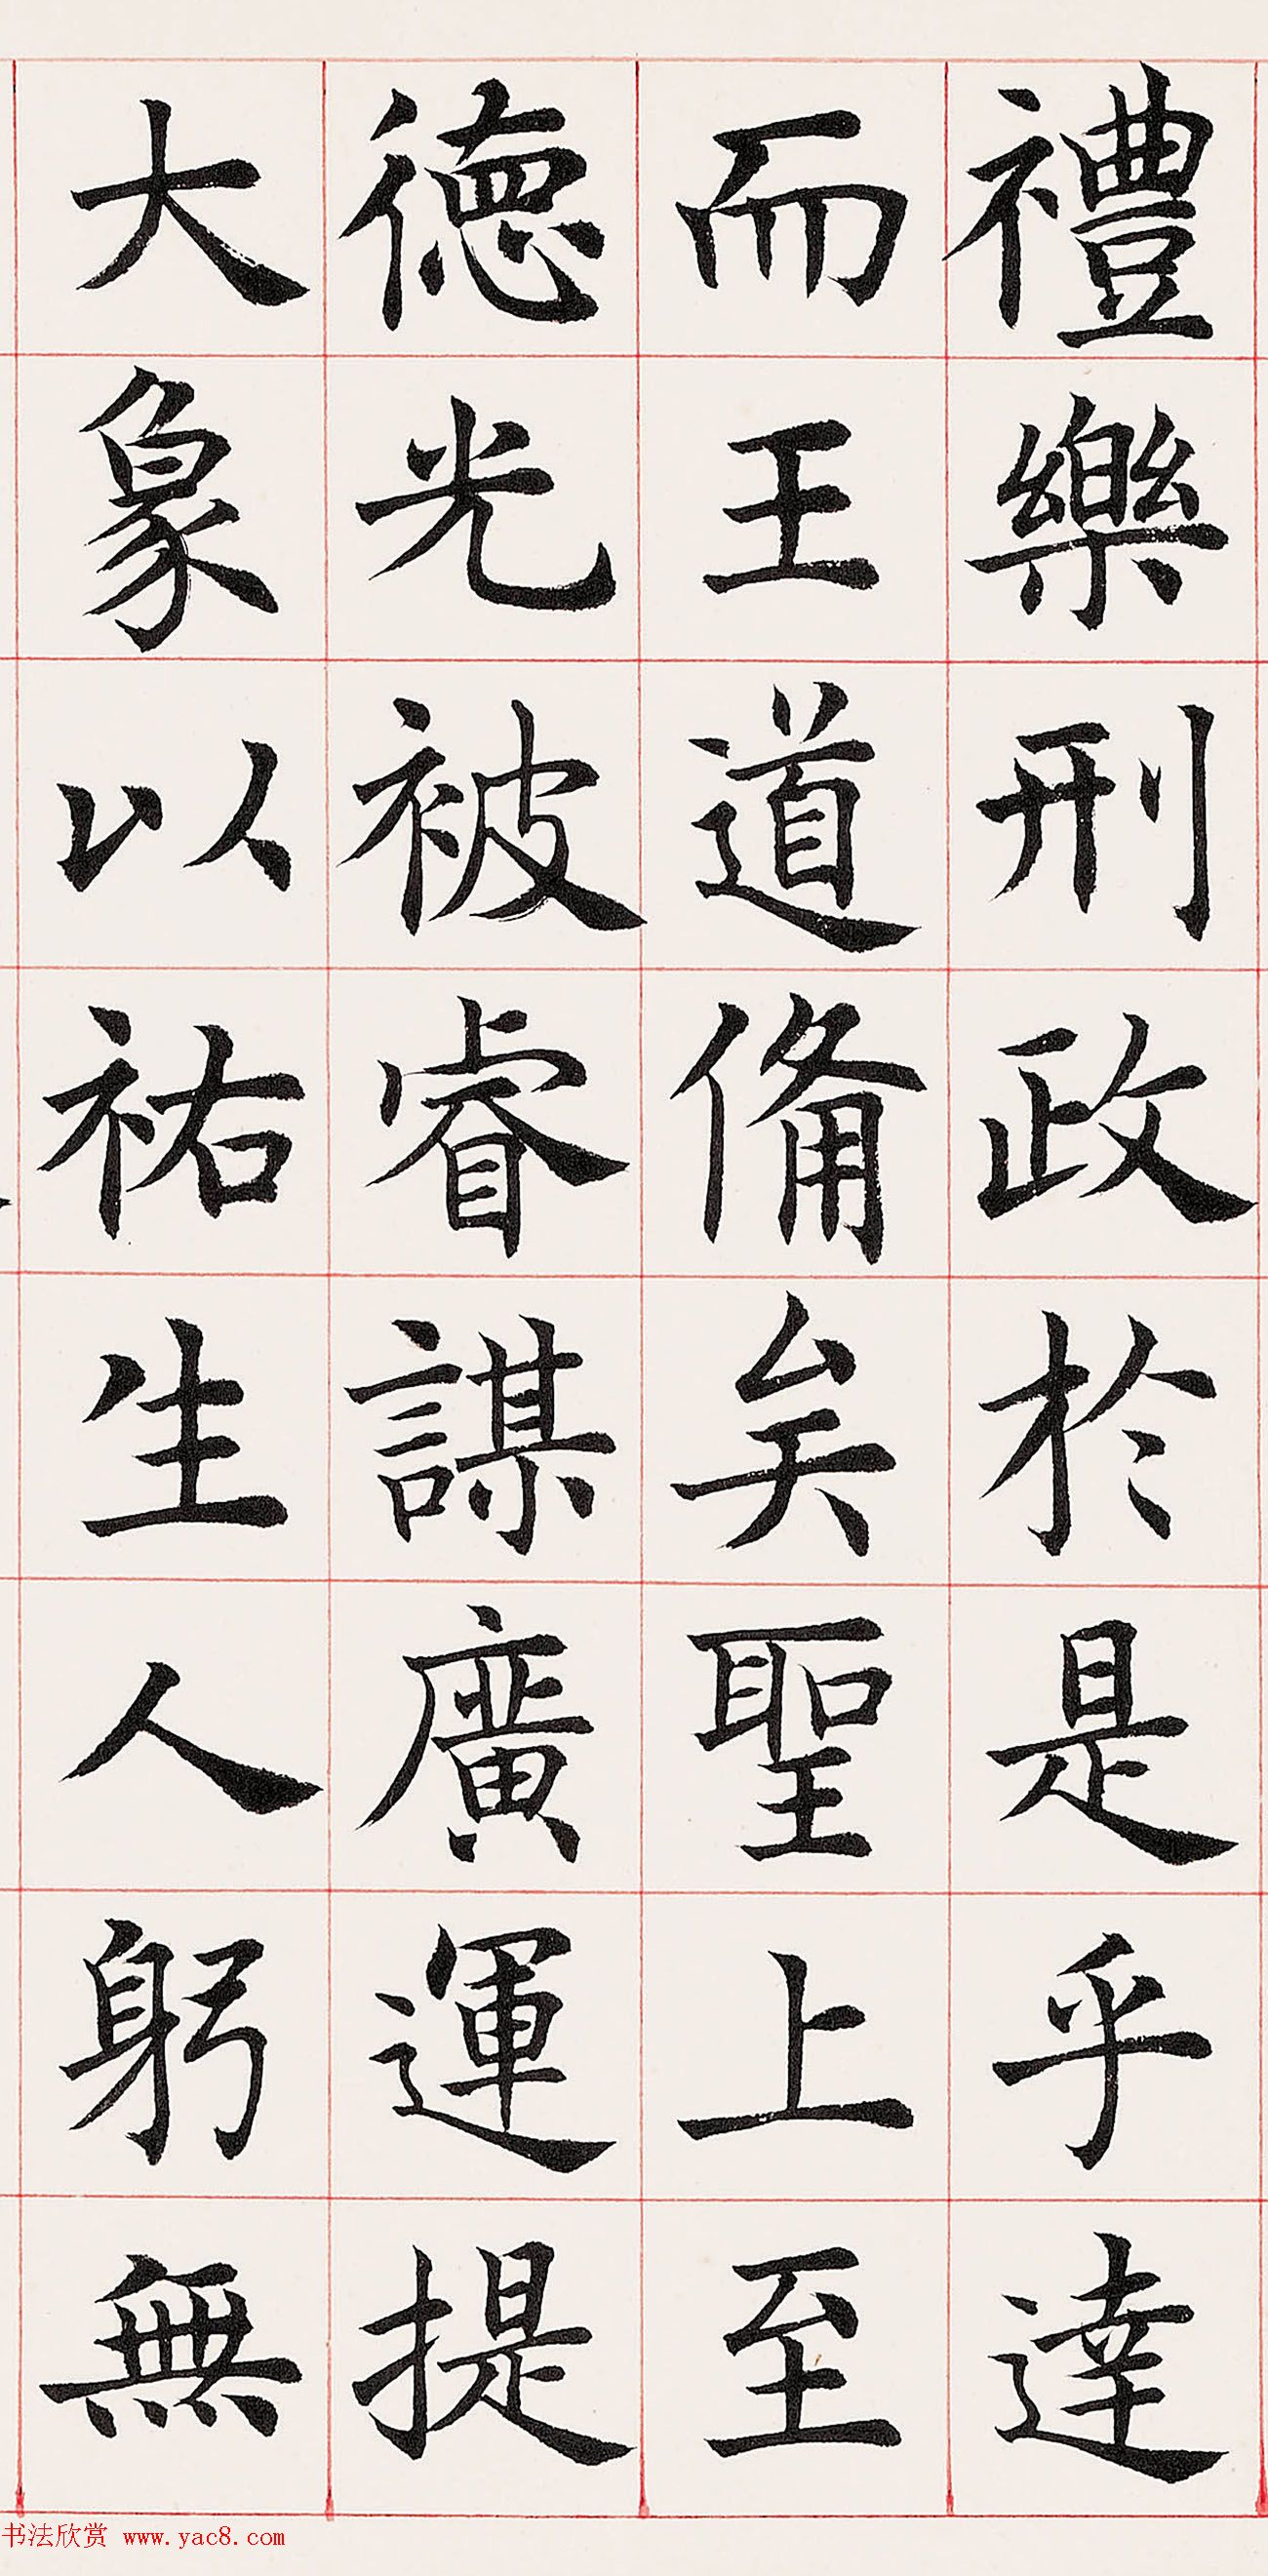 禮樂刑政於是乎達
而王道俻矣聖上至
德光被睿謀廣運提
大象以祐生人躬無
书法欣赏 www.yac8.com